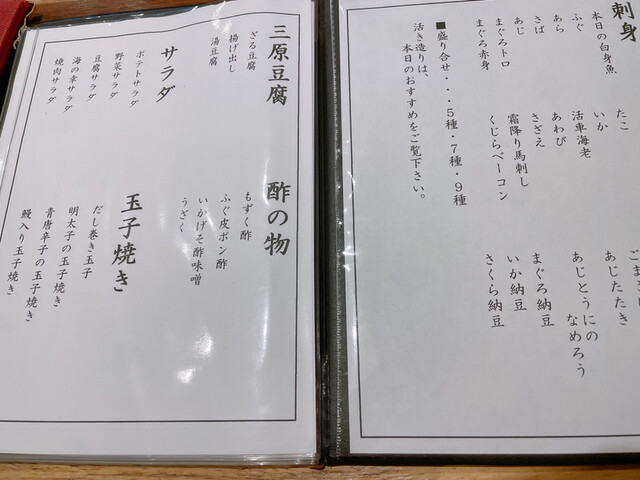 刺身
本日の白身魚
ふぐ
あら
さば
あじ
まぐろトロ
まぐろ赤身
たこ
いか
活車海老
あわび
さざえ
霜降り馬刺し
くじらベーコン
あじたたき
あじとうにの
なめろう
まぐろ納豆
いか納豆
さくら納豆
■盛り合せ・・・5種・7種・9種
活き造りは、
本日のおすすめをご覧下さい。
三原豆腐
ざる豆腐
揚げ出し
湯豆腐
サラダ
ポテトサラダ
野菜サラダ
豆腐サラダ
海の幸サラダ
焼肉サラダ
酢の物
もずく酢
ふぐ皮ポン酢
いかげそ酢味噌
うざく
玉子焼き
だし巻き玉子
明太子の玉子焼き
青唐辛子の玉子焼き
鰻入り玉子焼き